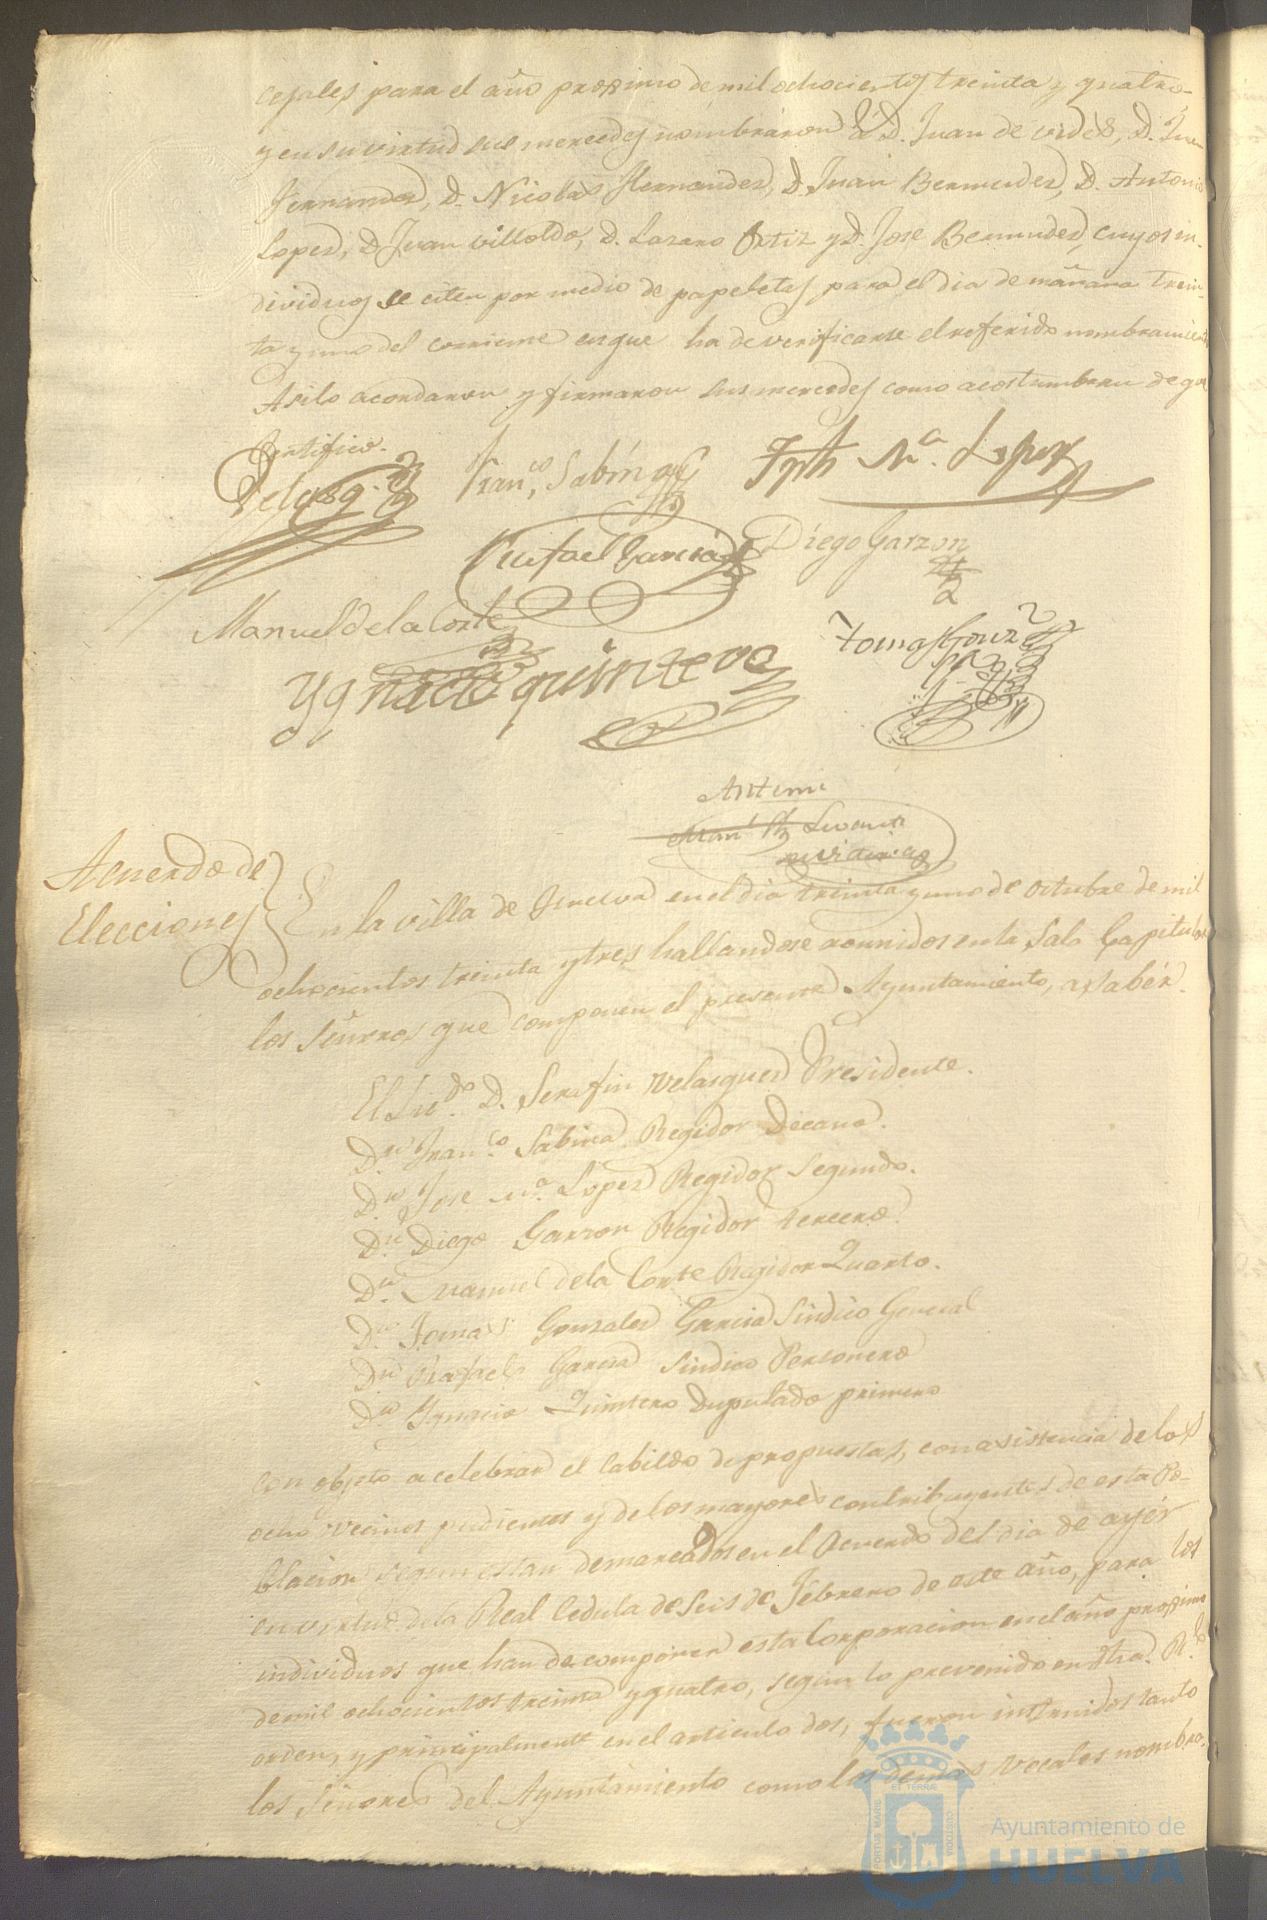 cejales para el año proximo de mil ochocientos treinta y quatro
y en su virtud sus mercedes nombraron á D. Juan de vides, D. Juan
Fernandez, D. Nicolas Hernandez, D. Juan Bermudez, D. Antonio
Lopez, D. Juan Villoldo, D. Lazaro Ortiz y D. Jose Bermudez, cuyos in-
dividuos se citen por medio de papeletas para el dia de mañana trein-
ta y uno del corriente en que ha de verificarse el referido nombramiento
Asi lo acordaron y firmaron sus mercedes como acostumbran de que
Certifico.
Velasq. Fran.co Sabina Jph M.a Lopez
Rafael Garcia Diego Garzon
Manuel de la Corte
Ygnacio quintero Tomas Gonz
Antemi
Acuerdo de
Elecciones
En la villa de Huelva en el dia treinta y uno de Octubre de mil
ochocientos treinta y tres hallandose reunidos en la Sala Capitular
los Señores que componen el presente Ayuntamiento, a saber.
El Lic.do D. Serafin Velasquez Presidente.
D.n Fran.co Sabina Regidor Decano.
D.n Jose M.a Lopez Regidor Segundo.
D.n Diego Garzon Regidor tercero.
D.n Manuel de la Corte Regidor Quarto.
D.n Tomas Gonzalez Garcia Sindico General
D.n Rafael Garcia Sindico Personero
D.n Ygnacio Quintero Diputado primero
con objeto a celebrar el Cabildo de propuestas, con asistencia de los
ocho vecinos pudientes y de los mayores contribuyentes de esta Po-
blacion segun estan demarcados en el Acuerdo del dia de ayér
en virtud de la Real Cedula de Seis de Febrero de este año, para los
individuos que han de componer esta Corporacion en el año proximo
de mil ochocientos treinta y quatro, segun lo prevenido en dha. R.l
orden, y principalmente en el articulo dos, fueron instruidos tanto
los Señores del Ayuntamiento como los demas Vocales nombra-
PORTUS MARIS
ET TERRÆ
CUSTODIA
Ayuntamiento de
HUELVA